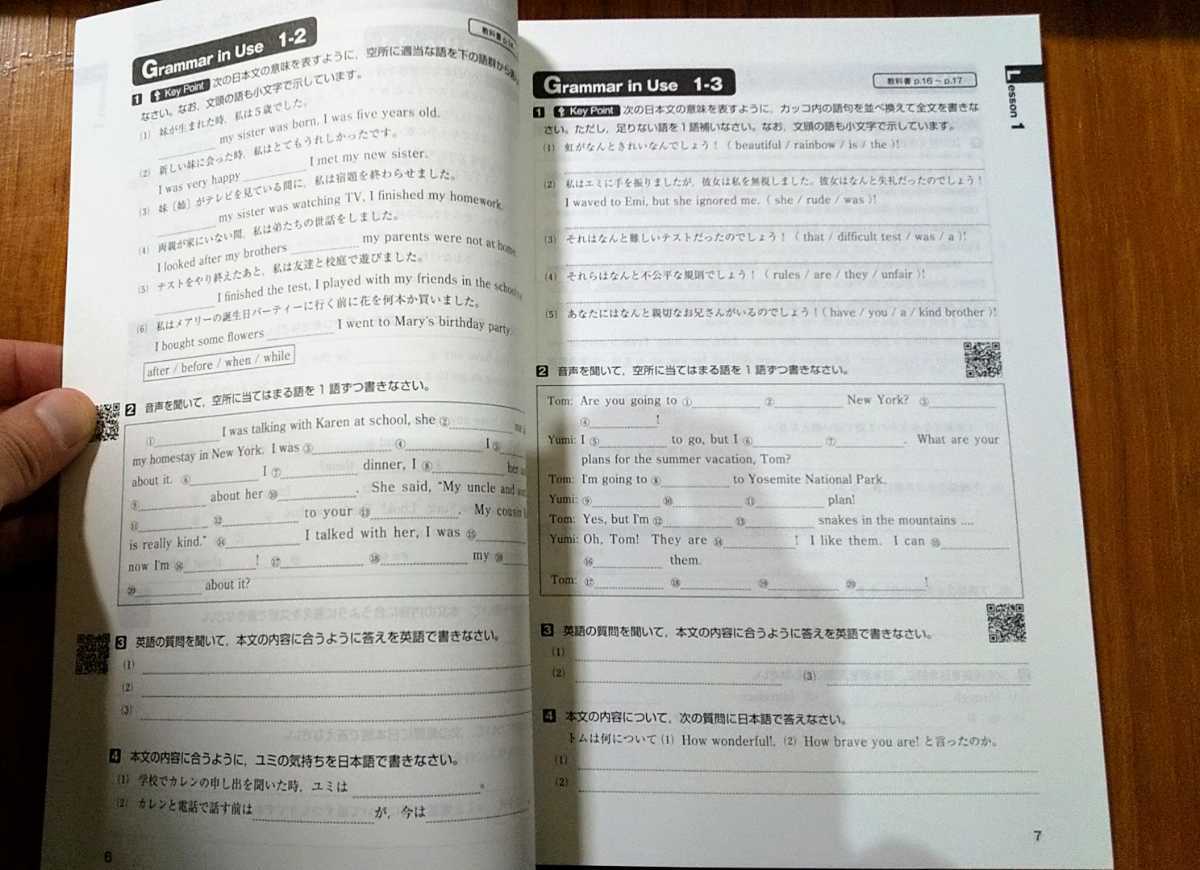 Grammar in Use 1-2
教科書
1 Key Point 次の日本文の意味を表すように，空所に適当な語を下の語群から
なさい。なお，文頭の語も小文字で示しています。
(1) 妹が生まれた時，私は5歳でした。
my sister was born, I was five years old.
(2) 新しい妹に会った時，私はとてもうれしかったです。
I was very happy I met my new sister.
(3) 妹〔姉〕がテレビを見ている間に，私は宿題を終わらせました。
my sister was watching TV, I finished my homework.
(4) 両親が家にいない間，私は弟たちの世話をしました。
I looked after my brothers my parents were not at home.
(5) テストをやり終えたあと，私は友達と校庭で遊びました。
I finished the test, I played with my friends in the
(6) 私はメアリーの誕生日パーティーに行く前に花を何本か買いました。
I bought some flowers I went to Mary's birthday party.
after / before / when / while
2 音声を聞いて，空所に当てはまる語を1語ずつ書きなさい。
① I was talking with Karen at school, she ②
my homestay in New York. I was ③ ④ I ⑤
about it. ⑥ I ⑦ dinner, I ⑧ her
⑨ about her ⑩ . She said, "My uncle and
⑪ ⑫ to your ⑬ . My cousin
is really kind." ⑭ I talked with her, I was ⑮
now I'm ⑯ ! ⑰ ⑱ my ⑲
⑳ about it?
3 英語の質問を聞いて，本文の内容に合うように答えを英語で書きなさい。
(1)
(2)
(3)
4 本文の内容に合うように，ユミの気持ちを日本語で書きなさい。
(1) 学校でカレンの申し出を聞いた時，ユミは 。
(2) カレンと電話で話す前は が，今は
6
Grammar in Use 1-3
教科書 p.16～p.17
Lesson 1
1 Key Point 次の日本文の意味を表すように，カッコ内の語句を並べ換えて全文を書きな
さい。ただし，足りない語を1語補いなさい。なお，文頭の語も小文字で示しています。
(1) 虹がなんときれいなんでしょう！（ beautiful / rainbow / is / the ）!
(2) 私はエミに手を振りましたが，彼女は私を無視しました。彼女はなんと失礼だったのでしょう！
I waved to Emi, but she ignored me.（ she / rude / was ）!
(3) それはなんと難しいテストだったのでしょう！（ that / difficult test / was / a ）!
(4) それらはなんと不公平な規則でしょう！（ rules / are / they / unfair ）!
(5) あなたにはなんと親切なお兄さんがいるのでしょう！（ have / you / a / kind brother ）!
2 音声を聞いて，空所に当てはまる語を1語ずつ書きなさい。
Tom: Are you going to ① ② New York? ③
④ !
Yumi: I ⑤ to go, but I ⑥ ⑦ . What are your
plans for the summer vacation, Tom?
Tom: I'm going to ⑧ to Yosemite National Park.
Yumi: ⑨ ⑩ ⑪ plan!
Tom: Yes, but I'm ⑫ ⑬ snakes in the mountains ....
Yumi: Oh, Tom! They are ⑭ ! I like them. I can ⑮
⑯ them.
Tom: ⑰ ⑱ ⑲ ⑳ !
3 英語の質問を聞いて，本文の内容に合うように答えを英語で書きなさい。
(1)
(2) (3)
4 本文の内容について，次の質問に日本語で答えなさい。
トムは何について (1) How wonderful!, (2) How brave you are! と言ったのか。
(1)
(2)
7